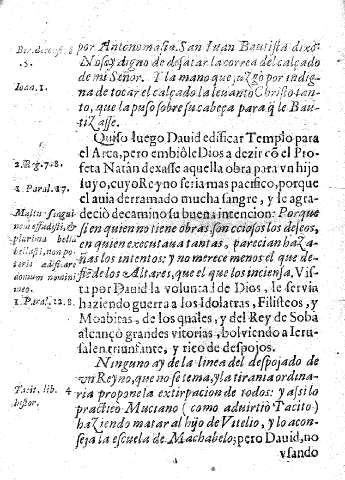 por Antonomasia. San Iuan Bautista dixo:
No soy digno de desatar la correa del calçado
de mi Señor. Y la mano que juzgò por indig
na de tocar el calçado la leuantò Christo tan-
to, que la puso sobre su cabeça para q̃ le Bau-
tizasse.
Quiso luego Dauid edificar Templo para
el Arca, pero embiòle Dios a dezir cõ el Pro-
feta Natàn dexasse aquella obra para vn hijo
suyo, cuyo Reyno seria mas pacifico, porque
el auia derramado mucha sangre, y le agra-
deciò de camino su buena intencion: Porque
si en quien no tiene obras son ociosos los deseos,
en quien executaua tantas, parecian haza-
ñas los intentos: y no merece menos el que de-
sde los Altares, que el que los inciensa. Vis-
ta por Dauid la voluntad de Dios, le seruia
haziendo guerra a los Idolatras, Filisteos, y
Moabitas, de los quales, y del Rey de Soba
alcançò grandes vitorias, boluiendo a Ieru-
salen triunfante, y rico de despojos.
Ninguno ay de la linea del despojado de
vn Reyno, que no se tema, y la tirania ordina-
ria propone la extirpacion de todos: y assi lo
practicò Muciano (como aduirtiò Tacito)
haziendo matar al hijo de Vitelio, y lo acon-
seja la escuela de Machabelo; pero Dauid, no
vsando
Ioan. 1.
2. Reg. 7. 8.
1. Paral. 17.
Multũ sangui
nem effudisti, &
plurima bella
bellasti, non po
teris ædificare
domum nomini
meo.
1. Paral. 22. 8.
Tacit. lib. 4
histor.